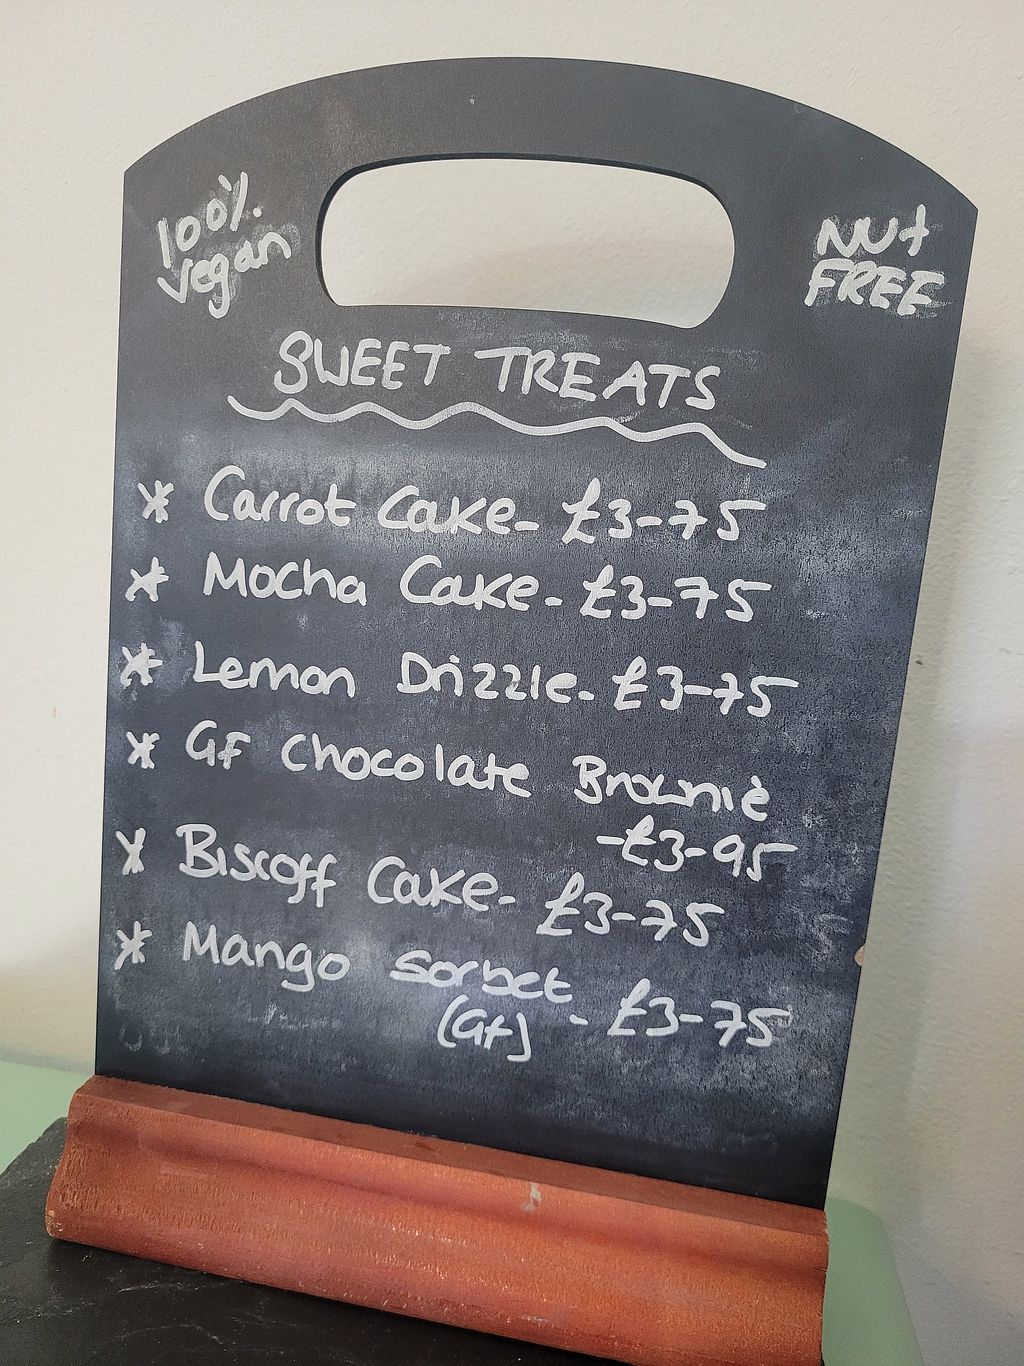 100% vegan
NUt FREE
SWEET TREATS
* Carrot Cake- £3-75
* Mocha Cake- £3-75
* Lemon Drizzle- £3-75
* GF Chocolate Brownie
-£3-95
* Biscoff Cake- £3-75
* Mango sorbet
(Gf) - £3-75